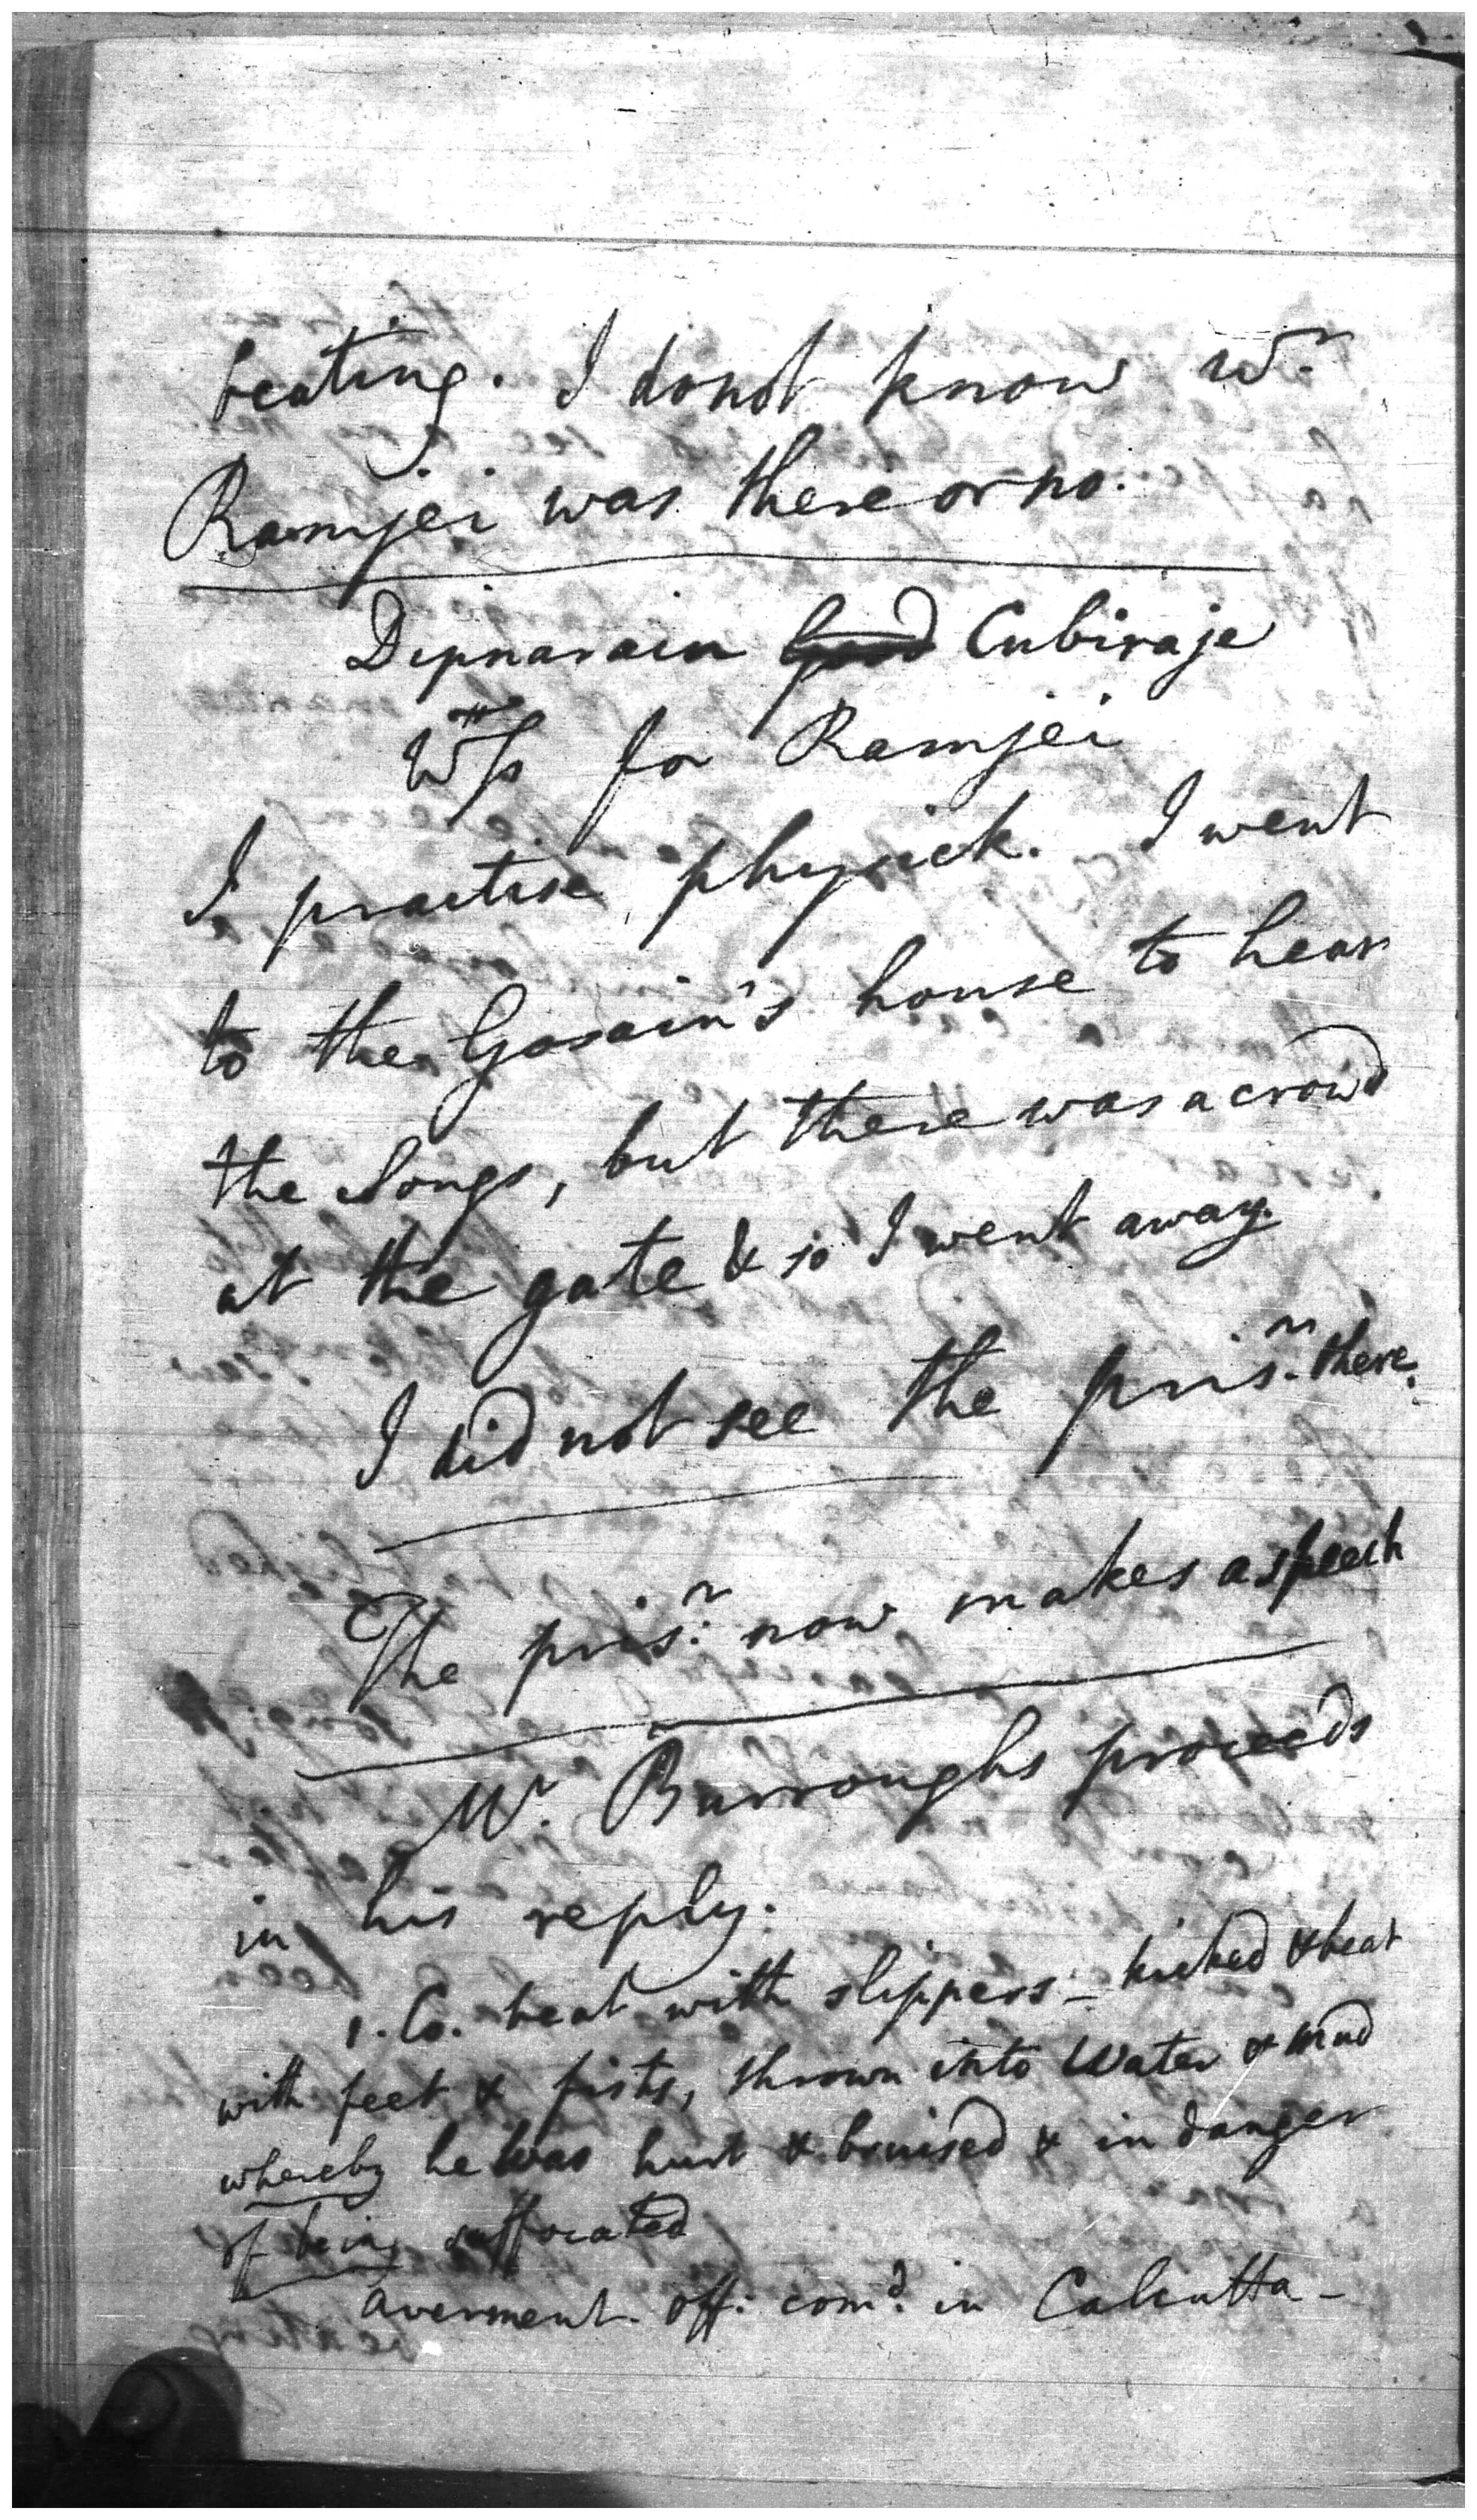 beating. I do not know wr.
Ramjei was there or no.
Dipnarain Cubiraje
Wss for Ramjei
I practise physick. I went
to the Gosain's house to hear
the Songs, but there was a crowd
at the gate & so I went away.
I did not see the prisr. there.
The prisr. now makes a speech
Mr. Burroughs proceeds
in his reply.
1. Co. beat with slippers - kicked & beat
with feet & fists, thrown into Water & mud
whereby he was hurt & bruised & in danger
of being suffocated
averment. off: comd. in Calcutta -